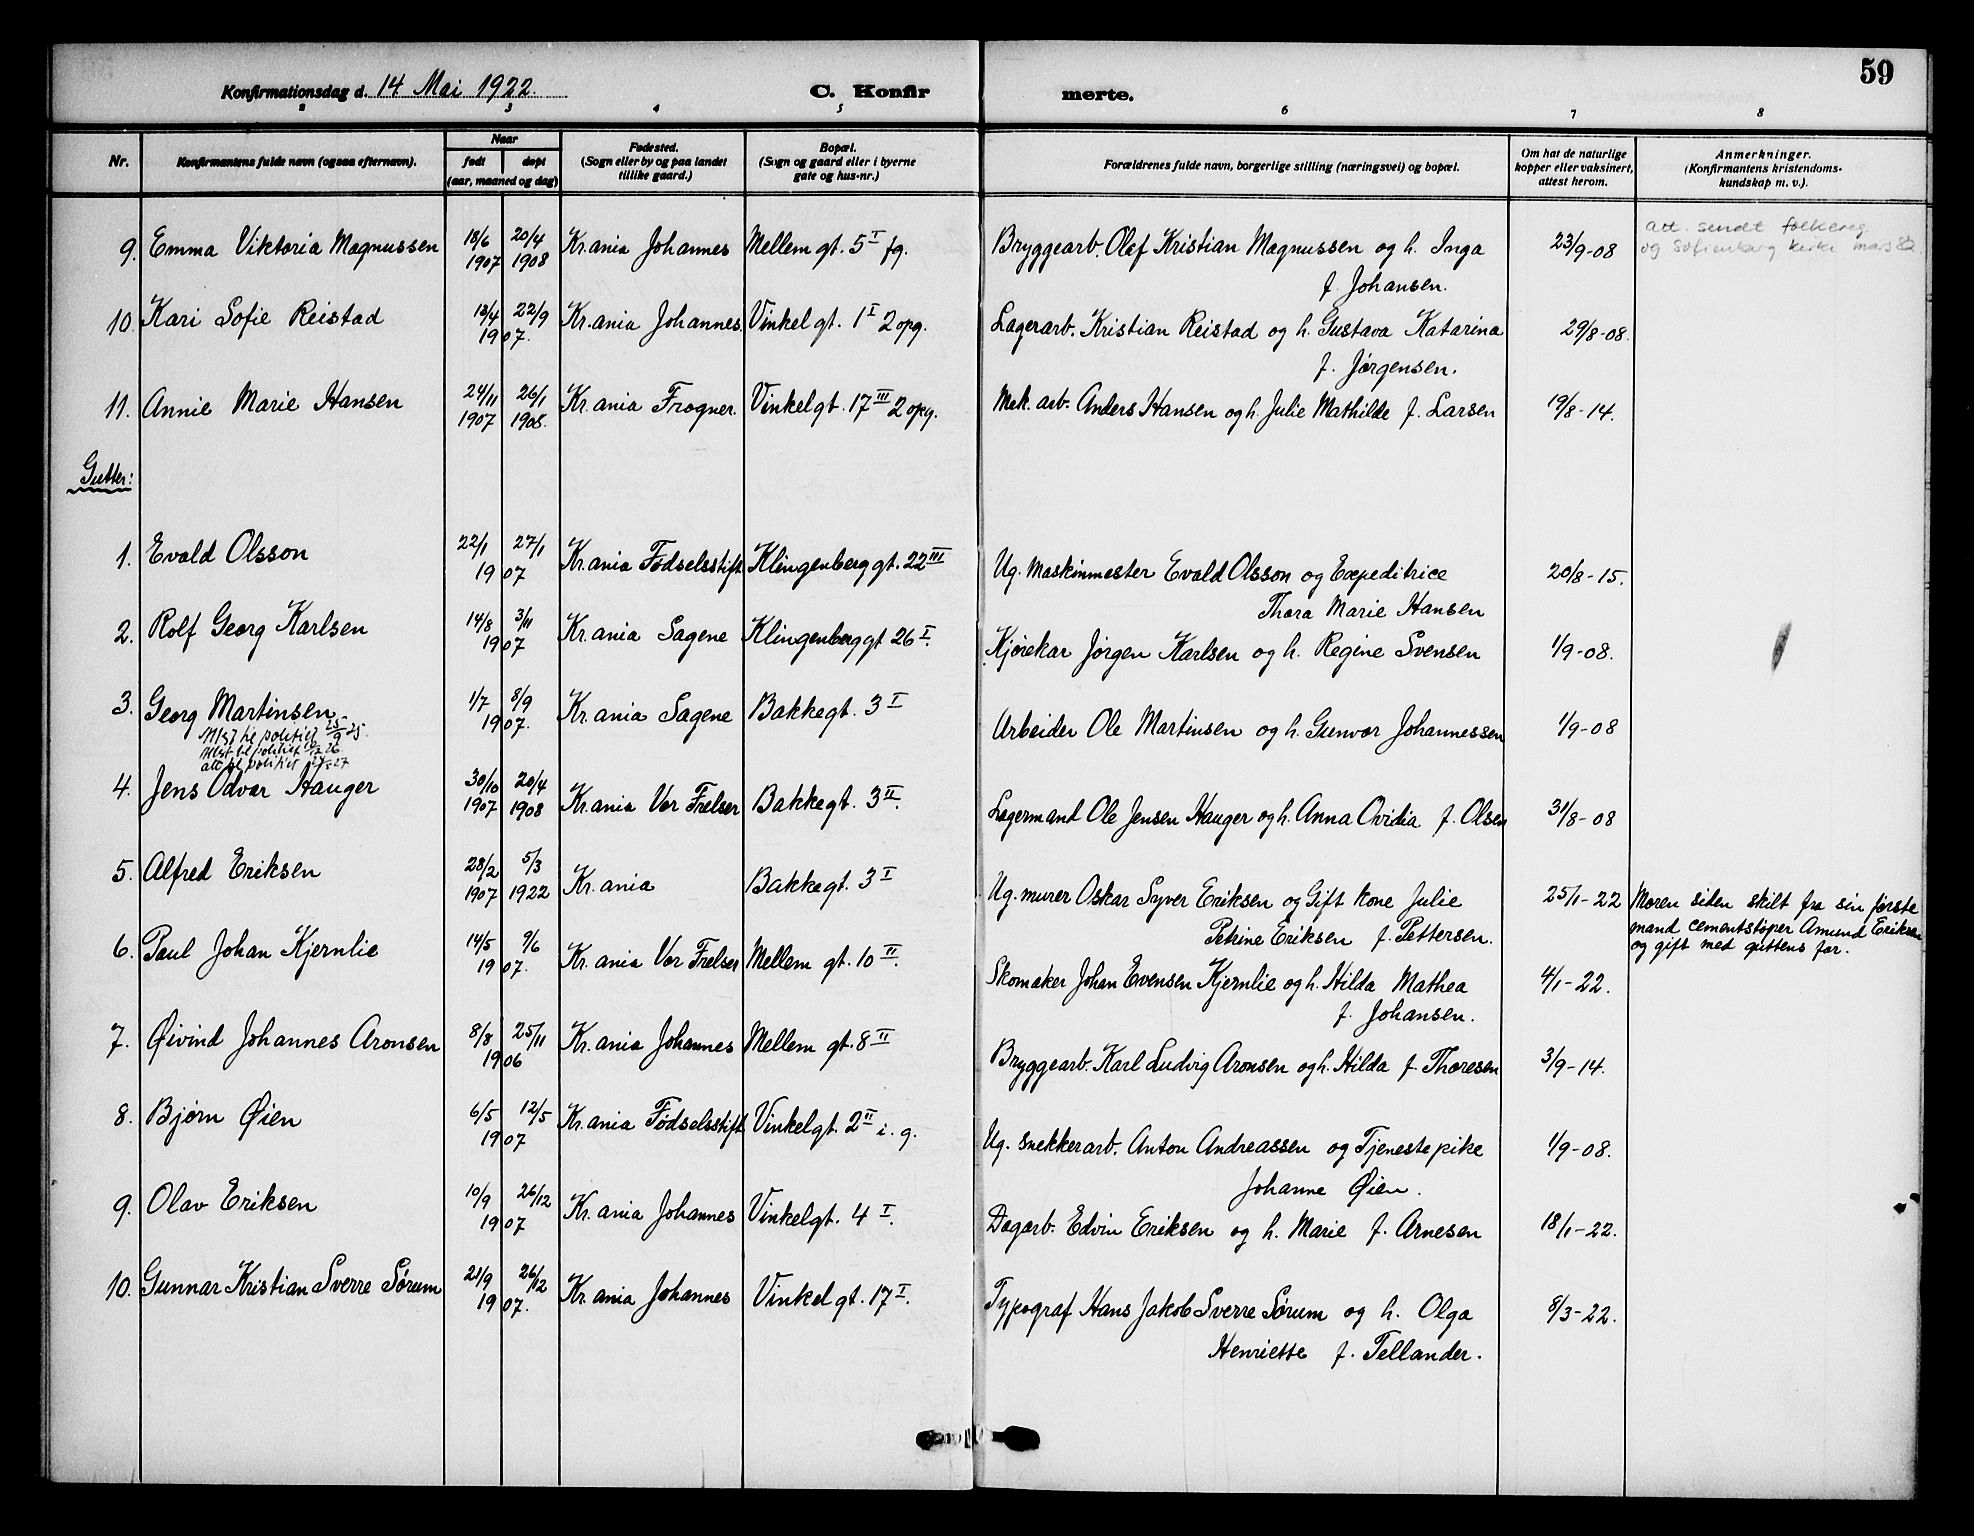 59
Konfirmationsdag d. 14 Mai 1922. C. Konfir merte.
2 3 4 5 6 7 8
Nr. Konfirmantens fulde navn (ogsaa efternavn). Naar født døpt (aar, maaned og dag) Fødested. (Sogn eller by og paa landet tillike gaard.) Bopæl. (Sogn og gaard eller i byerne gate og hus-nr.) Forældrenes fulde navn, borgerlige stilling (næringsvei) og bopæl. Om hat de naturlige kopper eller vaksinert, attest herom. Anmerkninger. (Konfirmantens kristendoms-kundskap m. v.).
att. sendt folkereg
og Sofienberg kirke mars 82
9. Emma Viktoria Magnussen 18/6 1907 20/4 1908 Kr.ania Johannes Mellem gt. 5 I fg. Bryggearb. Olof Kristian Magnussen og h. Inga 23/9-08
f. Johansen.
10. Kari Sofie Reistad 13/4 22/9 1907. Kr.ania Johannes. Vinkel gt. 1 I 2 opg. Lagerarb. Kristian Reistad og h. Gustava Katarina 29/8-08.
f. Jørgensen.
11. Annie Marie Hansen 24/11 1907 26/1 1908. Kr.ania Frogner. Vinkelgt. 17 III 2 opg. Mek. arb. Anders Hansen og h. Julie Mathilde f. Larsen 19/8-14.
Gutter:
1. Evald Olsson 22/1 27/1 1907 Kr.ania Fødselsstift Klingenberggt. 22 III Ug. Maskinmester Evald Olsson og Expeditrice 20/8-15.
Thora Marie Hansen
2. Rolf Georg Karlsen 14/8 3/11 1907 Kr.ania Sagene Klingenberggt 26 I. Kjørekar Jørgen Karlsen og h. Regine Svensen 1/9-08.
3. Georg Martinsen 1/7 8/9 1907. Kr.ania Sagene Bakkegt. 3 I Arbeider Ole Martinsen og h. Gunvor Johannessen 1/9-08
til politiet 25/9 25.
til politiet 26
att til politiet 27
4. Jens Odvar Hauger 30/10 1907 20/4 1908 Kr.ania Vor Frelser Bakkegt. 3 II. Lagermand Ole Jensen Hauger og h. Anna Ovidia f. Olsen 31/8-08
5. Alfred Eriksen 28/2 1907 5/3 1922 Kr.ania Bakkegt. 3 I Ug. murer Oskar Syver Eriksen og Gift kone Julie 25/1-22 Moren siden skilt fra sin første
Petrine Eriksen f. Pettersen. mand cementstøper Amund Eriksen
og gift med guttens far.
6. Paul Johan Kjernlie 14/5 9/6 1907. Kr.ania Vor Frelser Mellem gt. 10 II. Skomaker Johan Evensen Kjernlie og h. Hilda Mathea 4/1-22.
f. Johansen.
7. Øivind Johannes Aronsen 8/8 25/11 1906 Kr.ania Johannes Mellem gt. 8 II Bryggearb. Karl Ludvig Aronsen og h. Hilda f. Thoresen 3/9-14.
8. Bjørn Øien 6/5 12/5 1907 Kr.ania Fødselsstift Vinkelgt. 2 II i. g. Ug. snekkerarb. Anton Andreassen og Tjenestepike 1/9-08.
Johanne Øien.
9. Olav Eriksen 10/9 26/12 1907 Kr.ania Johannes Vinkelgt. 4 I. Dagarb. Edvin Eriksen og h. Marie f. Arnesen 18/1-22.
10. Gunnar Kristian Sverre Sørum 21/9 26/12 1907. Kr.ania Johannes Vinkel gt. 17 I. Typograf Hans Jakob Sverre Sørum og h. Olga 8/3-22.
Henriette f. Tellander.